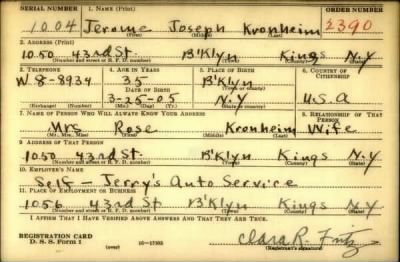 SERIAL NUMBER 1. NAME (Print) ORDER NUMBER
1004 Jerome Joseph Kronheim 2390
(First) (Middle) (Last)
2. ADDRESS (Print)
1050 43rd St. B'klyn Kings N.Y
(Number and street or R. F. D. number) (Town) (County) (State)
3. TELEPHONE 4. AGE IN YEARS 5. PLACE OF BIRTH 6. COUNTRY OF CITIZENSHIP
35 B'klyn
W 8-8934 DATE OF BIRTH (Town or county)
3-25-05 N.Y U.S.A
(Exchange) (Number) (Mo.) (Day) (Yr.) (State or country)
7. NAME OF PERSON WHO WILL ALWAYS KNOW YOUR ADDRESS 8. RELATIONSHIP OF THAT PERSON
Mrs Rose Kronheim Wife
(Mr., Mrs., Miss) (First) (Middle) (Last)
9. ADDRESS OF THAT PERSON
1050 43rd St. B'klyn Kings N.Y
(Number and street or R. F. D. number) (Town) (County) (State)
10. EMPLOYER'S NAME
Self - Jerry's Auto Service
11. PLACE OF EMPLOYMENT OR BUSINESS
1056 43rd St B'klyn Kings N.Y
(Number and street or R. F. D. number) (Town) (County) (State)
I AFFIRM THAT I HAVE VERIFIED ABOVE ANSWERS AND THAT THEY ARE TRUE.
REGISTRATION CARD Clara R. Fritz
D. S. S. Form 1 (over) (Registrar's signature)